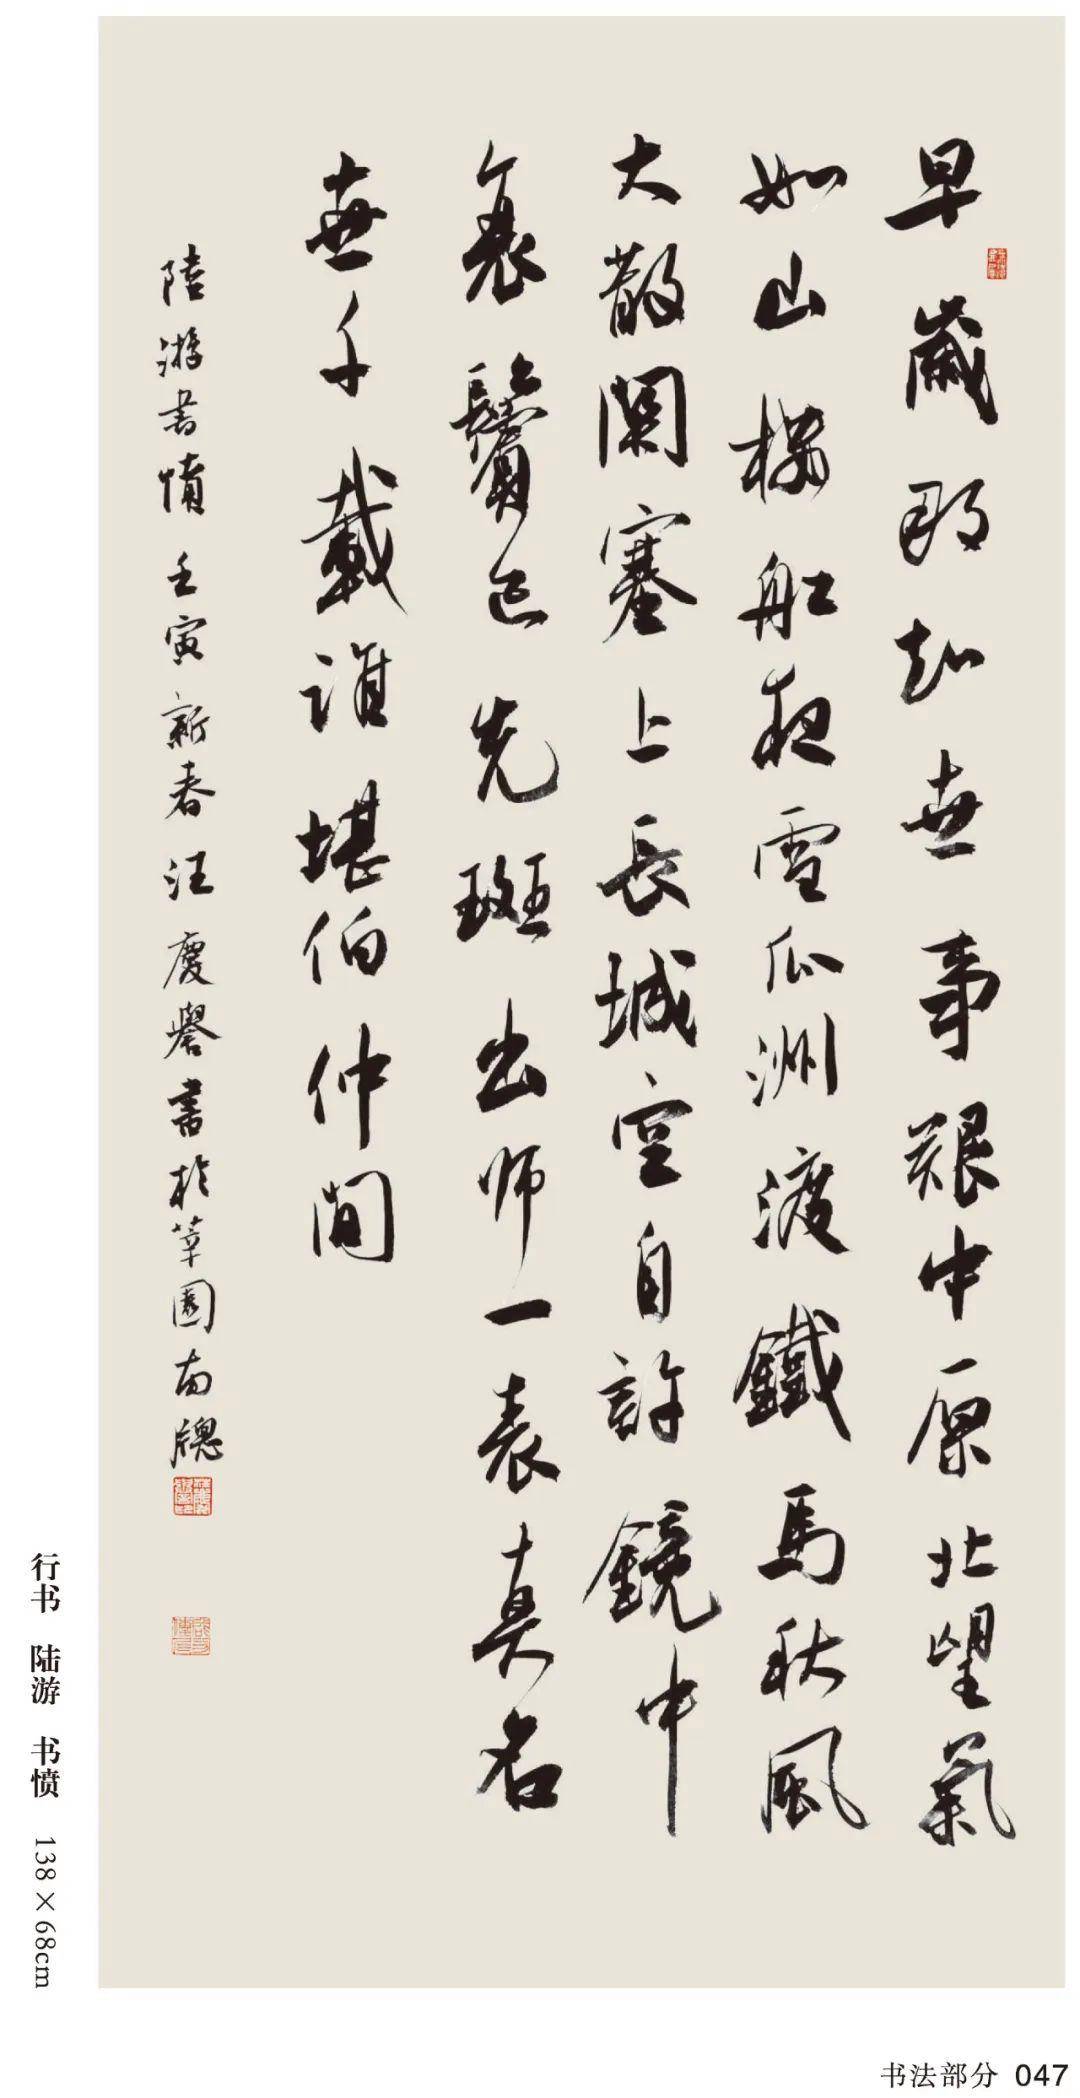 早歲那知世事艱中原北望氣
如山樓舡夜雪瓜洲渡鐵馬秋風
大散關塞上長城空自許鏡中
衰鬢已先斑出师一表真名
世千載誰堪伯仲間
陸游書憤 壬寅新春汪慶譽書於莘園南牕
行书 陆游 书愤 138×68cm
书法部分 047